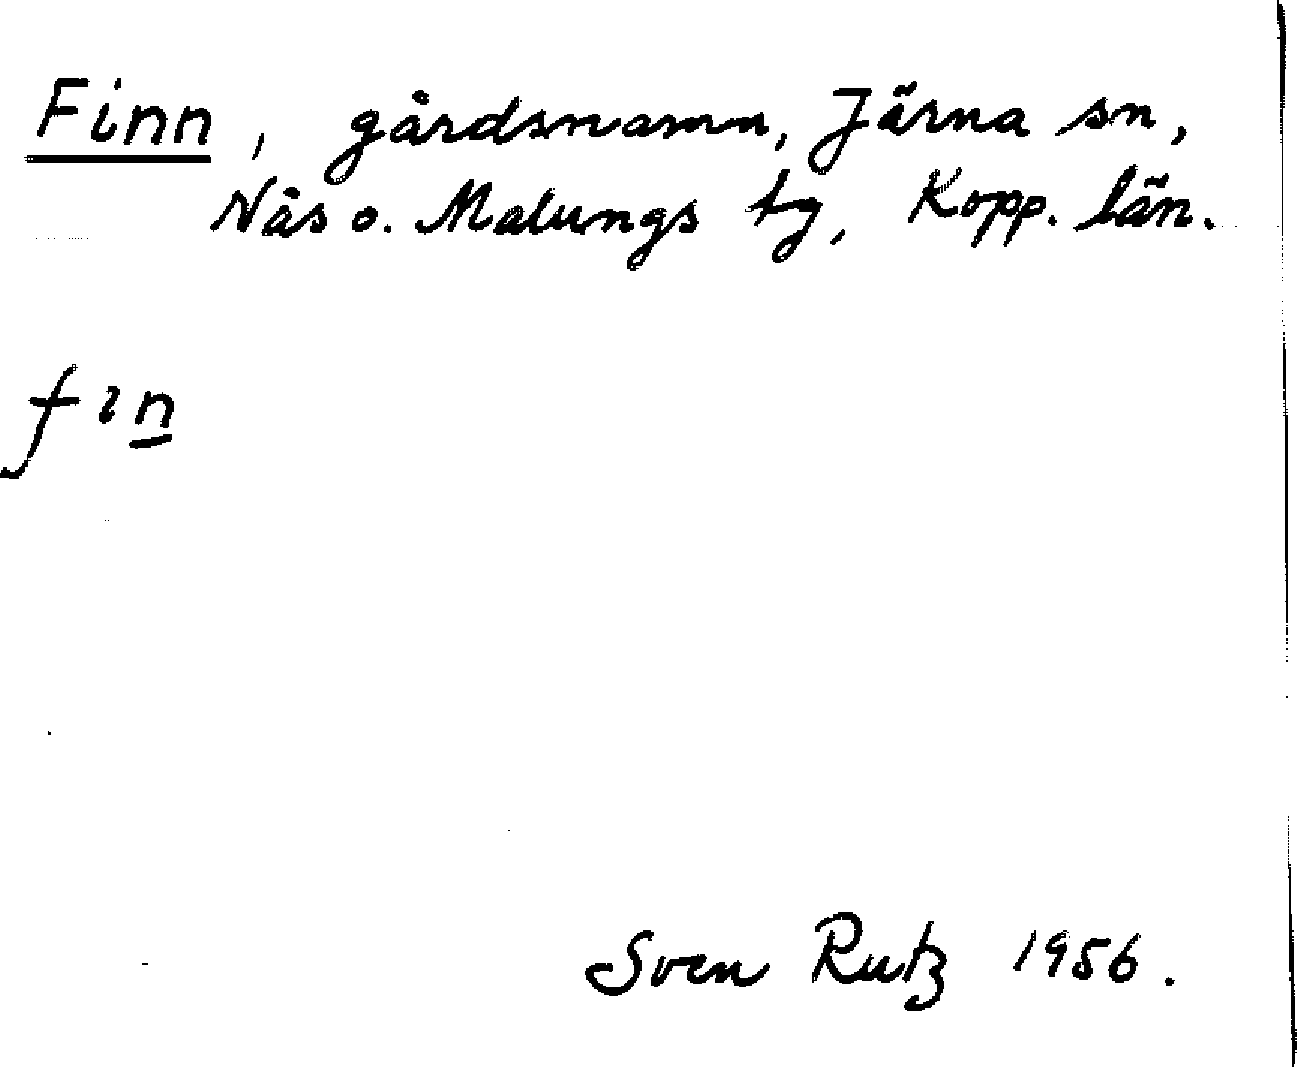 Finn, gårdsnamn, Järna sn,
Nås o. Malungs tg, Kopp. län.
fın̲
Sven Rutz 1956.